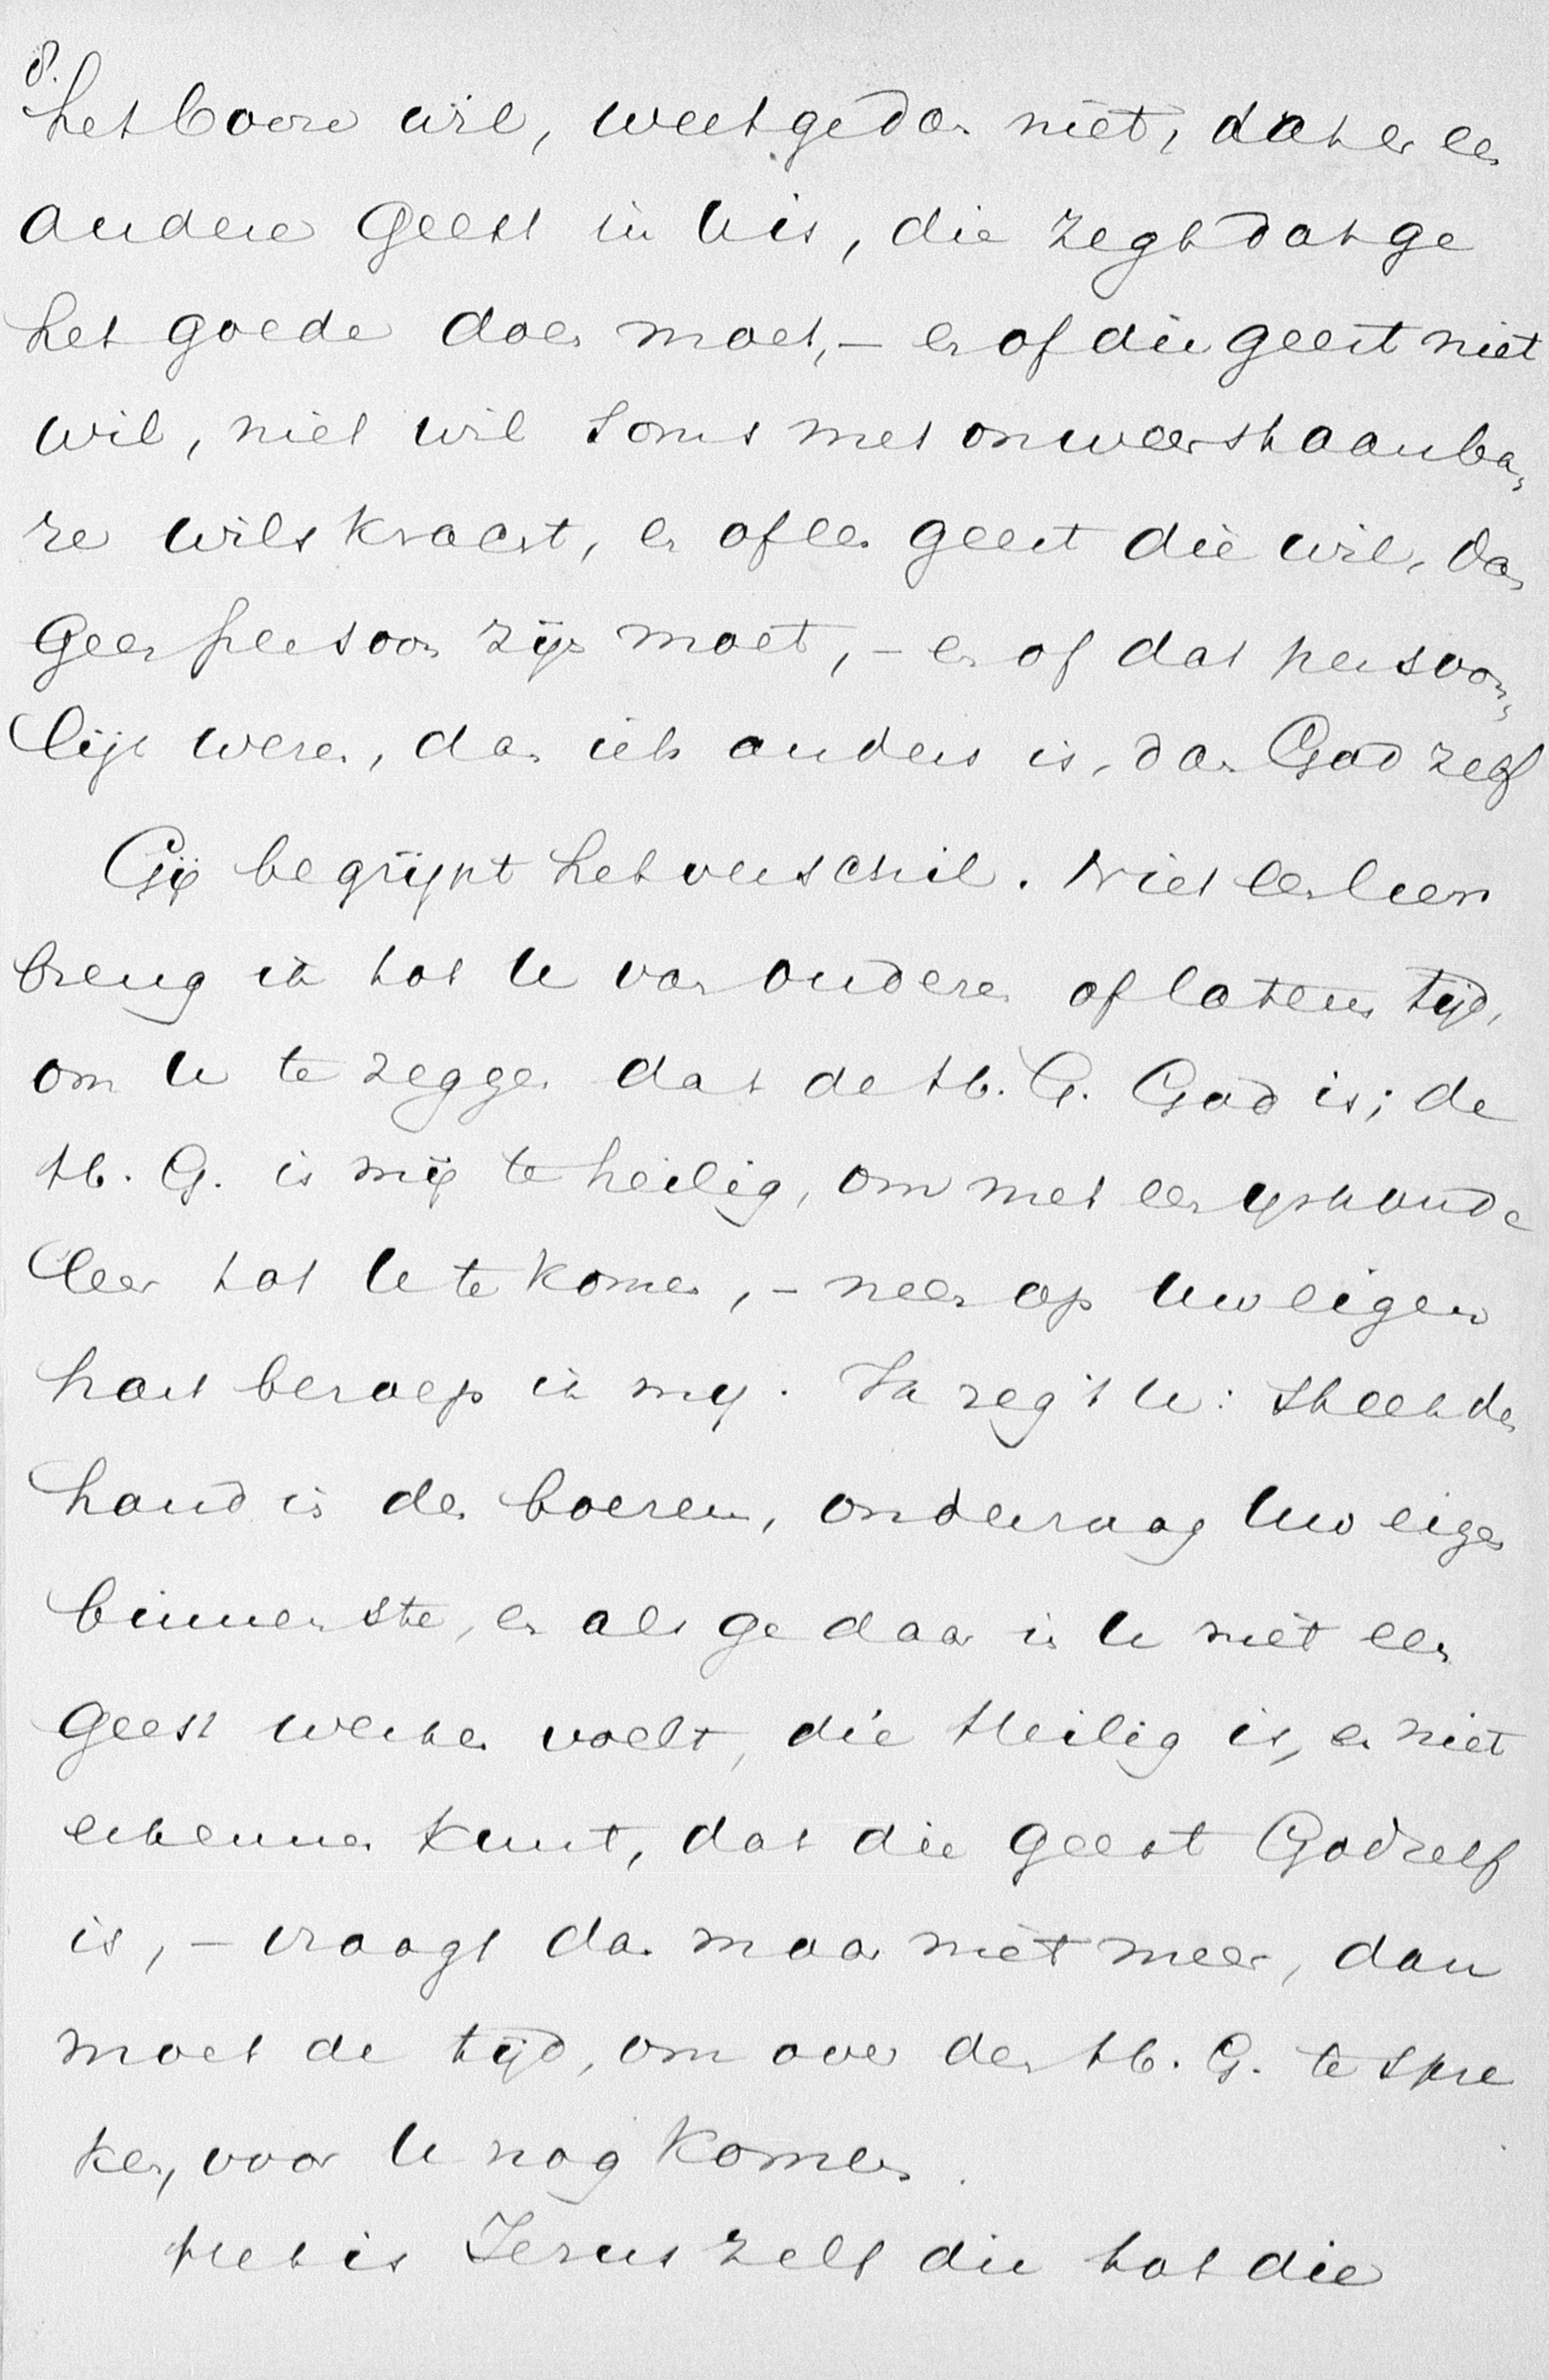 8.
het booze wil, weet ge dan niet, dat er een
andere Geest in U is, die zegt dat ge
het goede doen moet, – en of die geest niet
wil, niet wil soms met onweerstaanba-
re wilskracht, en of een geest die wil, dan
geen persoon zijn moet, – en of dat persoon-
lijk wezen, dan iets anders is, dan God zelf
Gij begrijpt het verschil. Niet een leer
breng ik tot U van ouderen of lateren tijd,
om U te zeggen dat de H. G. God is; de
H. G. is mij te heilig, om met een ijskoude
leer tot U te komen, – neen op Uw eigen
hart beroep ik mij. Ik zeg 't U: steek de
hand in den boezem, ondervraag Uw eigen
binnenste, en als ge daar in U niet een
geest werken voelt, die Heilig is, en niet
erkennen kunt, dat die geest God zelf
is, – vraagt dan maar niet meer, dan
moet de tijd, om over den H. G. te spre
ken, voor U nog komen.
Het is Jezus zelf die tot die